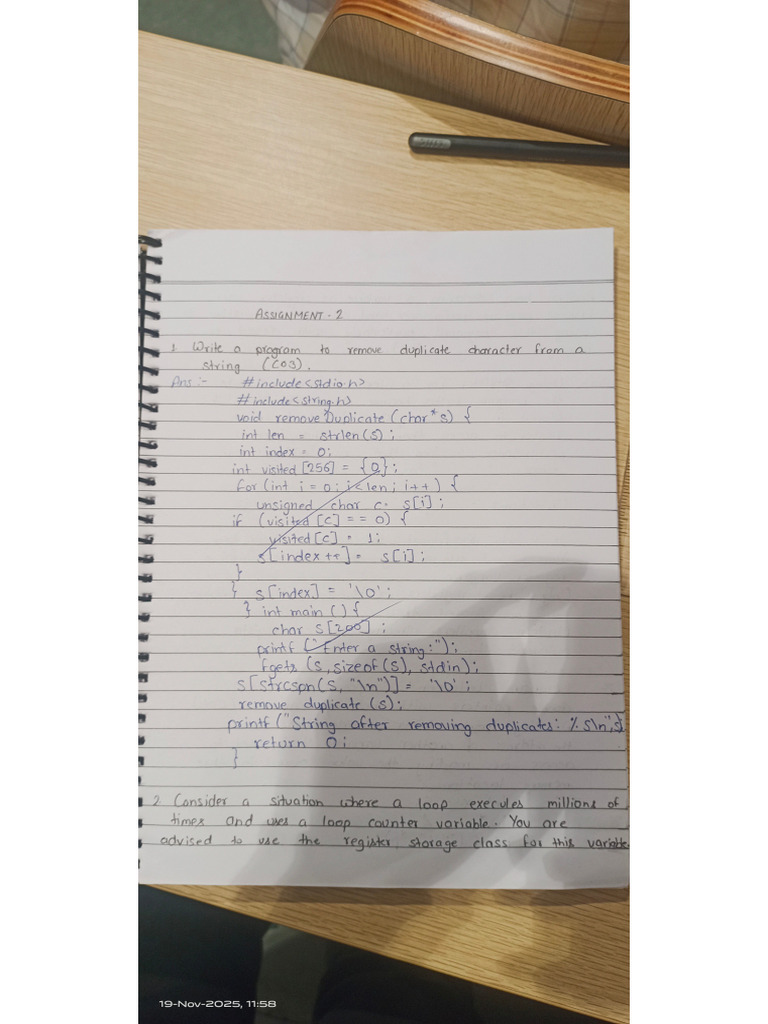 ASSIGNMENT - 2
1. Write a program to remove duplicate character from a
string (CO3).
Ans :- #include<stdio.h>
#include<string.h>
void removeDuplicate (char* s) {
int len = strlen(s) ;
int index = 0;
int visited [256] = {0};
for (int i = 0; i<len; i++) {
unsigned char c = s[i] ;
if (visited [c] == 0) {
visited [c] = 1;
s[index ++] = s[i] ;
}
} s[index] = '\0' ;
} int main () {
char s[200] ;
printf ("Enter a string:");
fgets (s, sizeof(s), stdin);
s[strcspn(s, "\n")] = '\0' ;
remove duplicate (s);
printf ("String after removing duplicates: %s\n",s)
return 0;
}
2. Consider a situation where a loop execules millions of
times and uses a loop counter variable. You are
advised to use the register storage class for this variable
19-Nov-2025, 11:58